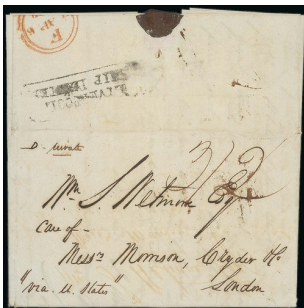 LIVERPOOL
SHIP LETTER
Wm S. Wetmore Esqr
Care of -
Messrs Morrison, Cryder & Co
London
"via U. States"